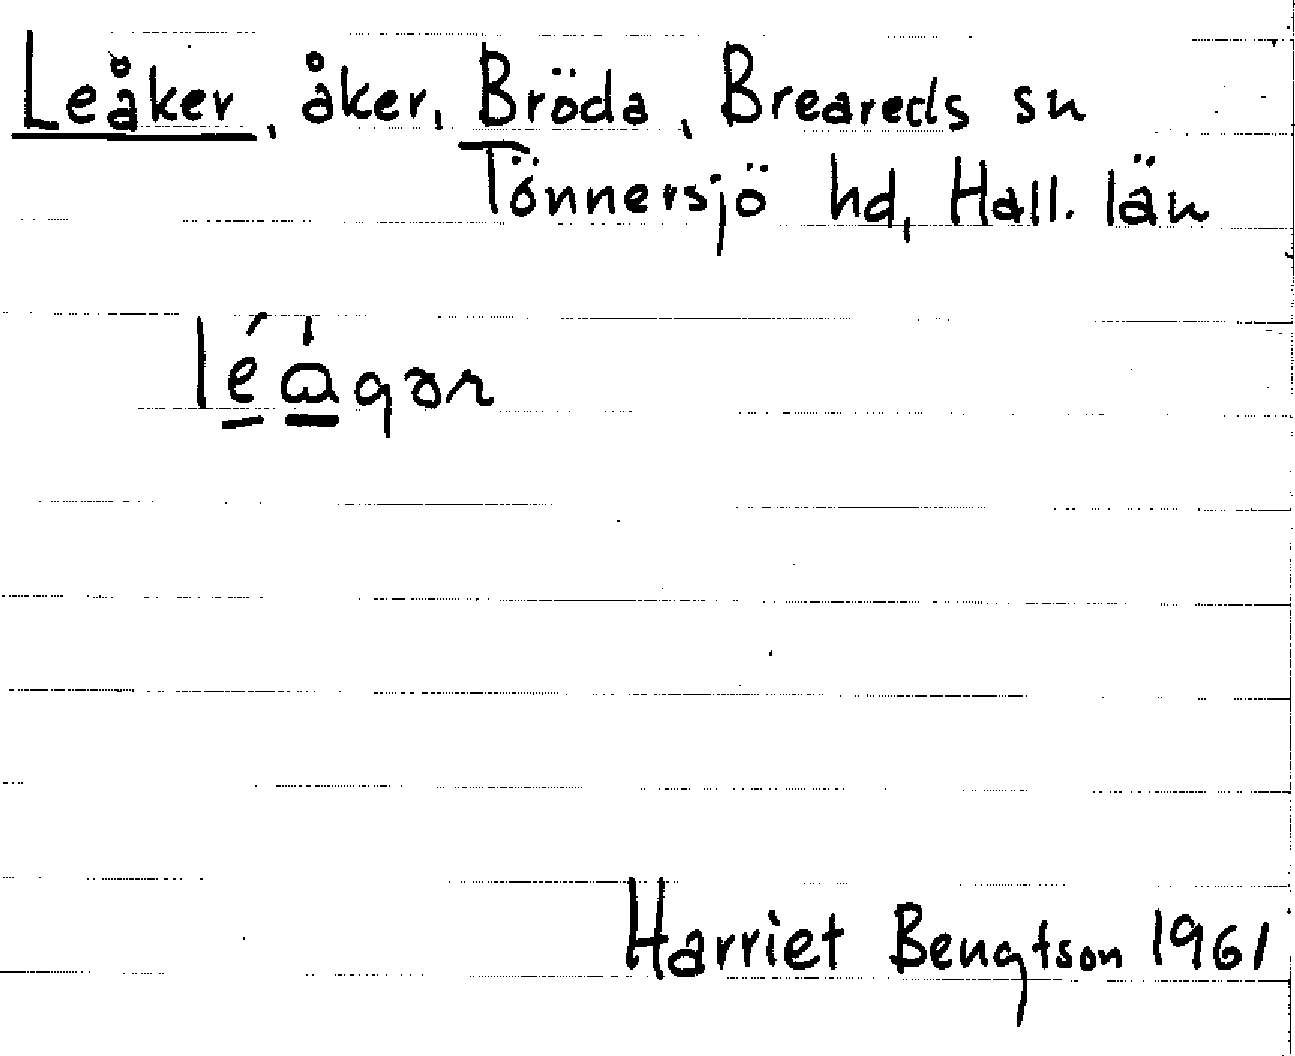 Leåker, åker, Bröda, Breareds sn
Tönnersjö hd, Hall. län
lé̱ɷ̱̍gər
Harriet Bengtson 1961